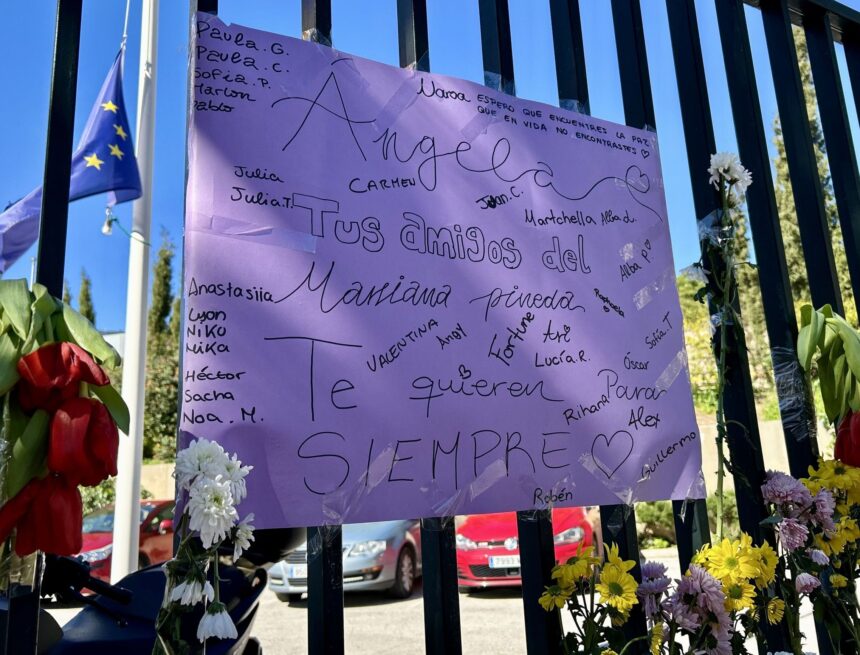 Paula. G.
Paula. C.
Sofía. P.
Marlon
Pablo
Naroa ESPERO QUE ENCUENTRES LA PAZ
QUE EN VIDA NO ENCONTRASTES ♡
Ángela ♡
Julia
Julia.T.
CARMEN
Joan. C.
Martchella Alba d.
Tus amigos del
Alba P ♡
Anastasiia
Mariana pineda
Raphaela
Lyon
Niku
Mika
VALENTINA
Angy
Fortune
Ari
Lucía. R.
Sofía. T
Óscar
Héctor
Sacha
Noa. M.
Te quieren Para
Rihana
Alex
SIEMPRE ♡
Guillermo
Rubén